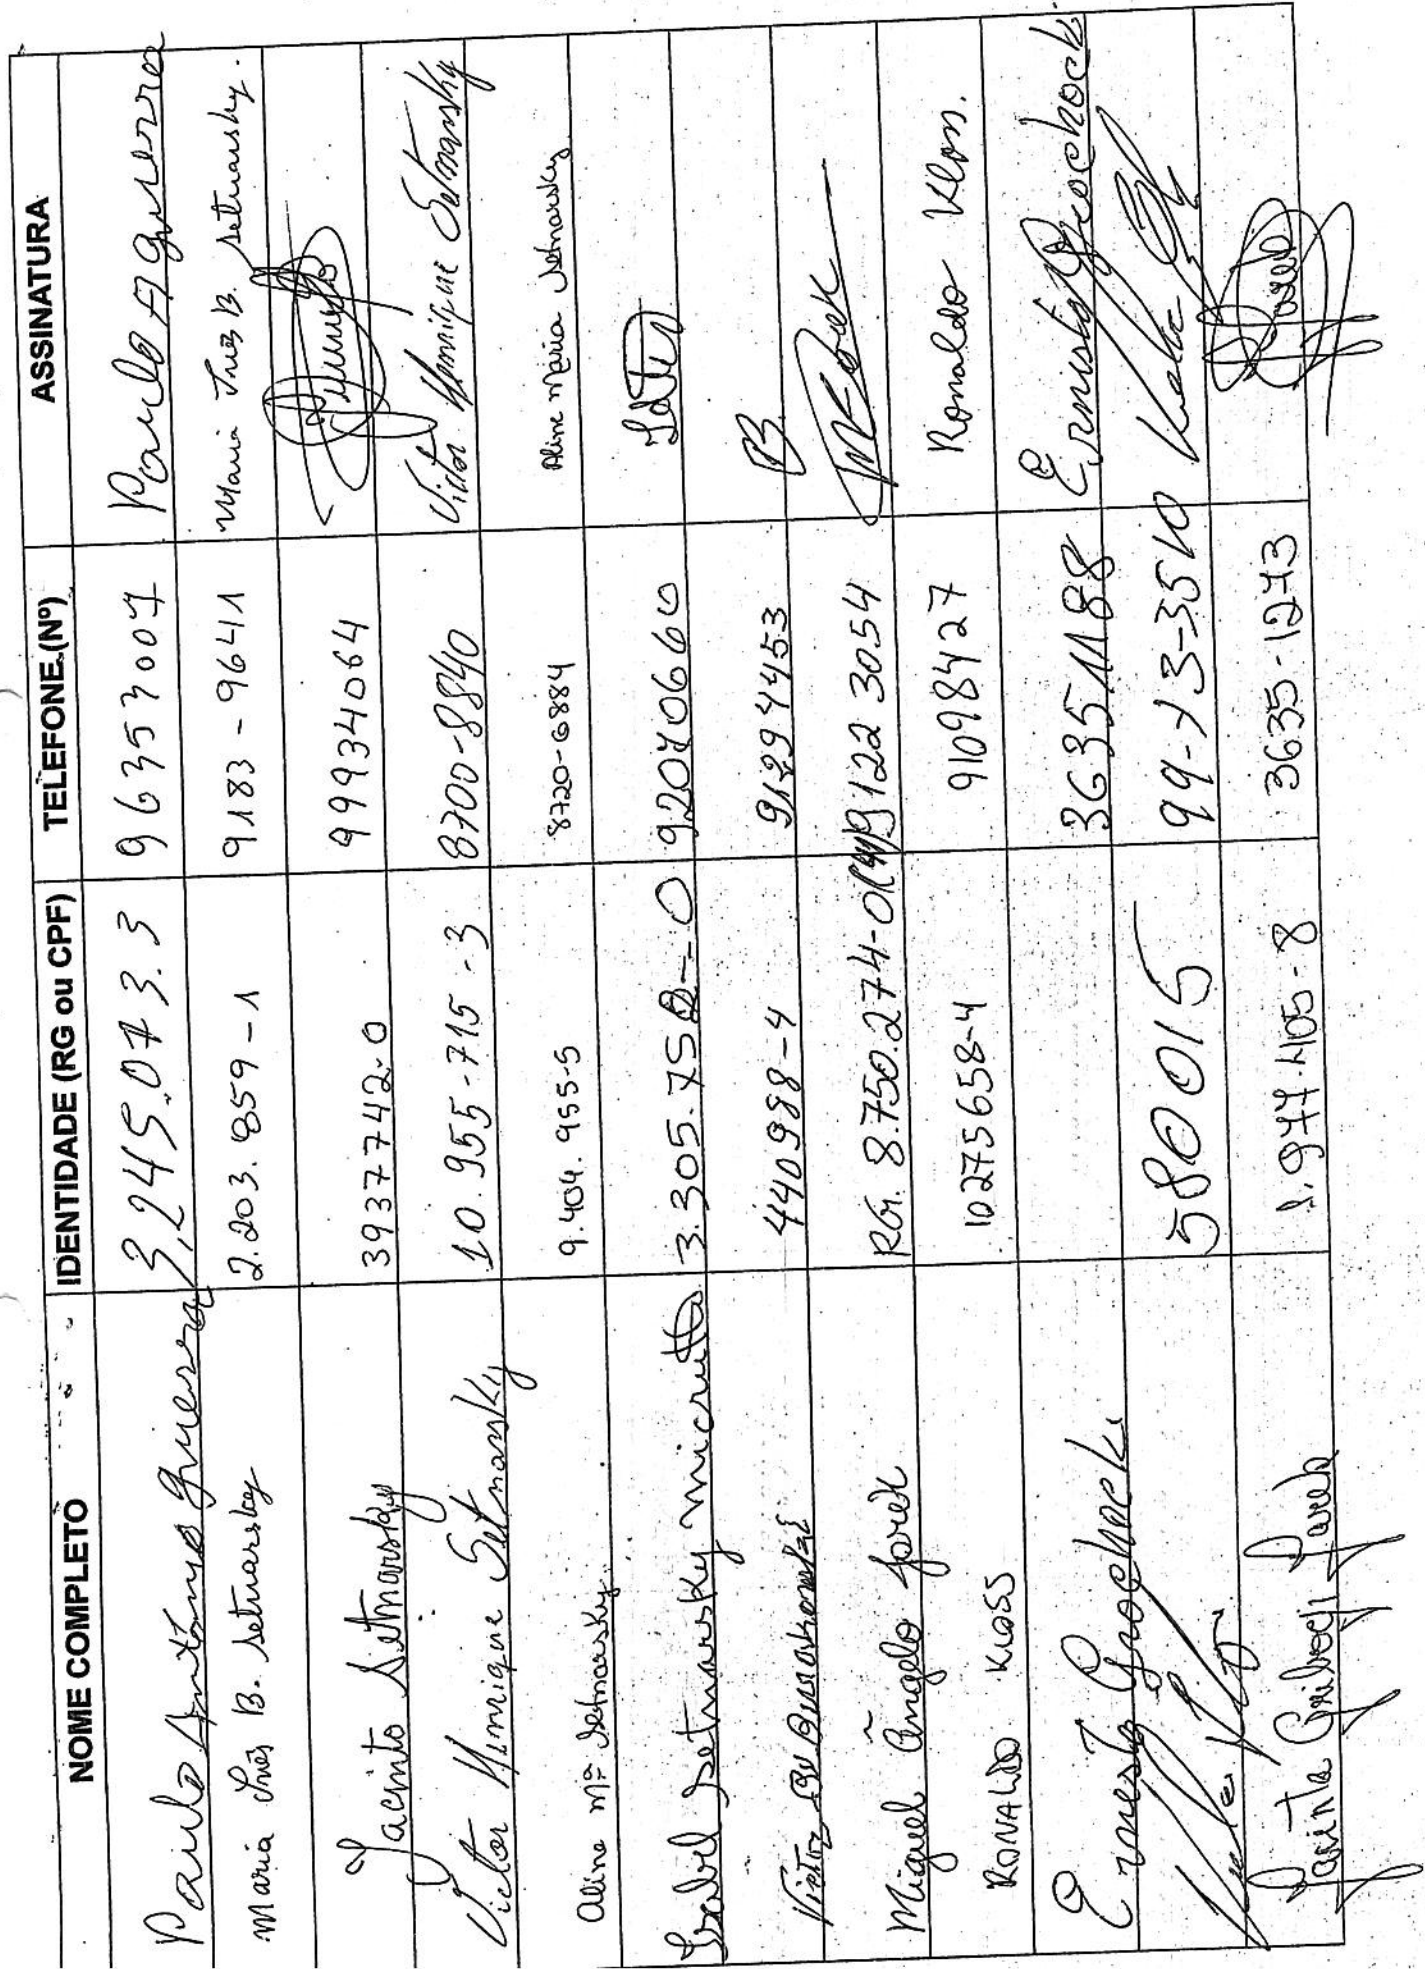 NOME COMPLETO IDENTIDADE (RG ou CPF) TELEFONE (Nº) ASSINATURA
Paulo Antônio Guerra 3,245.073.3 96353007 Paulo A Guerra
Maria Inês B. Setnarsky 2.203.859-1 9183-9641 Maria Inês B. Setnarsky.
Jacinto Setnarsky 3937742-0 99934064
Victor Henrique Setnarsky 10.955-715-3 8700-8840 Victor Henrique Setnarsky
Aline Mª Setnarsky. 9.404.955-5 8720-6884 Aline Maria Setnarsky
Isabel Setnarsky 3.305.75 -0 92070660
Victor 440988-4 91294453 B
Miguel Angelo Jorek RG. 8.750.274-0 (41) 9122 3054
RONALDO KLOSS 10275658-4 91098427 Ronaldo Kloss.
Ernesto Grochocki 36351188 Ernisto Grochock
580015 99-73-3510
Jacinta 1.977.405-8 3635-1273